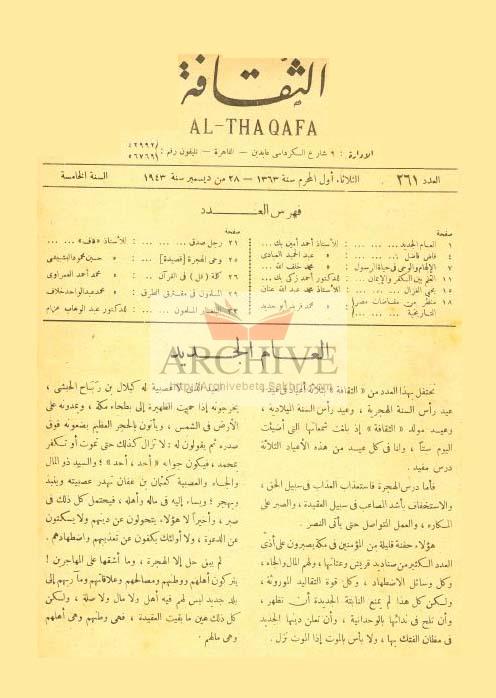 الثقافة
AL-THAQAFA
الإدارة : ٩ شارع الكرداسى عابدين — القاهرة — تليفون رقم :
٤٢٩٩٢
٥٦٧٦٩
العدد ٢٦١
الثلاثاء أول المحرم سنة ١٣٦٣ — ٢٨ من ديسمبر سنة ١٩٤٣
السنة الخامسة
فهرس العدد
صفحة
١ العام الجديد ... ... : للأستاذ أحمد أمين بك ...
٤ قاض فاضل ... ... : » عبد الحميد العبادى
٧ الإلهام والوحى فى حياة الرسول : » محمد خلف الله ...
١١ العلم بين الكفر والإيمان ... : للدكتور أحمد زكى بك ...
١٤ يحيى الغزال ... ... : للأستاذ محمد عبد الله عنان
١٨ منظر من مفاضات مصر : » محمد فريد أبو حديد
التاريخية
صفحة
٢١ رجل صدق ... ... : للأستاذ «ق» ...
٢٥ وحى الهجرة [قصيدة] ... : » حسين محمود البشبيشى
٢٦ كلمة (قل) فى القرآن ... : » محمد أحمد الغمراوى
٢٩ المسلمون فى مفترق الطرق : » محمد عبد الواحد خلاف
٣٣ المسلمون ... : للدكتور عبد الوهاب عزام
ARCHIVE
http://Archivebeta.Sakhrit.com
العام الجديد
نحتفل بهذا العدد من « الثقافة » بثلاثة أعياد فى عيد
عيد رأس السنة الهجرية ، وعيد رأس السنة الميلادية ،
وعيد مولد « الثقافة » إذ بلغت شمعاتها التى أضيئت
اليوم ستاً ، ولنا فى كل عيد من هذه الأعياد الثلاثة
درس مفيد .
فأما درس الهجرة فاستعذاب العذاب فى سبيل الحق ،
والاستخفاف بأشد المصاعب فى سبيل العقيدة ، والصبر على
المكاره ، والعمل المتواصل حتى يأتى النصر .
هؤلاء حفنة قليلة من المؤمنين فى مكة يصبرون على أذى
العدد الكثير من صناديد قريش وعتاتها ، ولهم المال والجاه ،
وكل وسائل الاضطهاد ، وكل قوة التقاليد الموروثة ،
ولكن كل هذا لم يمنع النابتة الجديدة أن تظهر ،
وأن تلح فى ندائها بالوحدانية ، وأن تعلن دينها الجديد
فى مظان الفتك بها ، ولا بأس بالموت إذا الموت نزل .
العبد الذى لا عصبية له كبلال بن رباح الحبشى ،
يخرجونه إذا حميت الظهيرة إلى بطحاء مكة ، ويمدونه على
الأرض فى الشمس ، ويأتون بالحجر العظيم يضعونه فوق
صدره ثم يقولون له : لا تزال كذلك حتى تموت أو تكفر
بمحمد ، فيكون جوابه « أحد ، أحد » ؛ والسيد ذو المال
والجاه والعصبية كعثمان بن عفان تهدر عصبيته وينبذ
ويهجر ؛ ويساء إليه فى ماله وأهله ، فيحتمل كل ذلك فى
صبر ، وأخيراً لا هؤلاء يتحولون عن دينهم ولا يسكتون
عن الدعوة ، ولا أولئك يكفون عن تعذيبهم واضطهادهم .
لم يبق حل إلا الهجرة ، وما أشقها على المهاجرين !
يتركون أهلهم ووطنهم ومصالحهم وعلاقاتهم ومآربهم إلى
بلد جديد ليس لهم فيه أهل ولا مال ولا صلة ، ولكن
كل ذلك هين ما بقيت العقيدة ، فهى وطنهم وهى أهلهم
وهى مالهم .